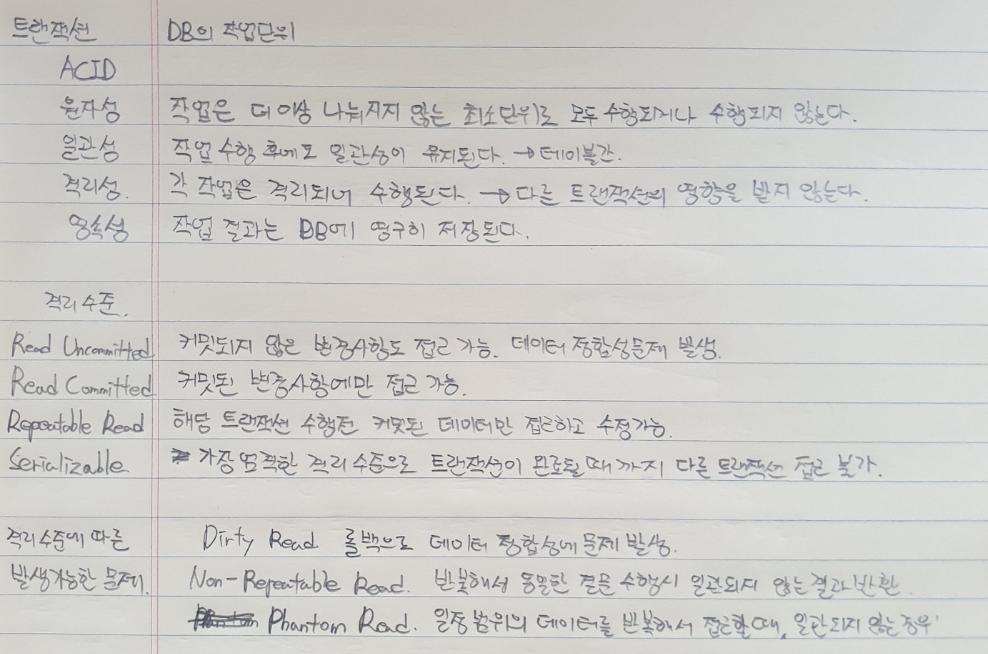 트랜잭션 DB의 작업단위
ACID
원자성 작업은 더이상 나눠지지 않는 최소단위로 모두 수행되거나 수행되지 않는다.
일관성 작업 수행 후에도 일관성이 유지된다. → 테이블간.
격리성. 각 작업은 격리되어 수행된다. → 다른 트랜잭션의 영향을 받지 않는다.
영속성 작업 결과는 DB에 영구히 저장된다.
격리수준.
Read Uncommitted 커밋되지 않은 변경사항도 접근 가능. 데이터 정합성문제 발생.
Read Committed 커밋된 변경사항에만 접근 가능.
Repeatable Read 해당 트랜잭션 수행전 커밋된 데이터만 접근하고 수정가능.
Serializable 가장 엄격한 격리수준으로 트랜잭션이 완료될 때 까지 다른 트랜잭션 접근 불가.
격리수준에 따른 Dirty Read 롤백으로 데이터 정합성에 문제 발생.
발생가능한 문제. Non-Repeatable Read. 반복해서 동일한 수행시 일관되지 않는 결과 반환.
Phantom Read. 일정범위의 데이터를 반복해서 접근할 때, 일관되지 않는 경우